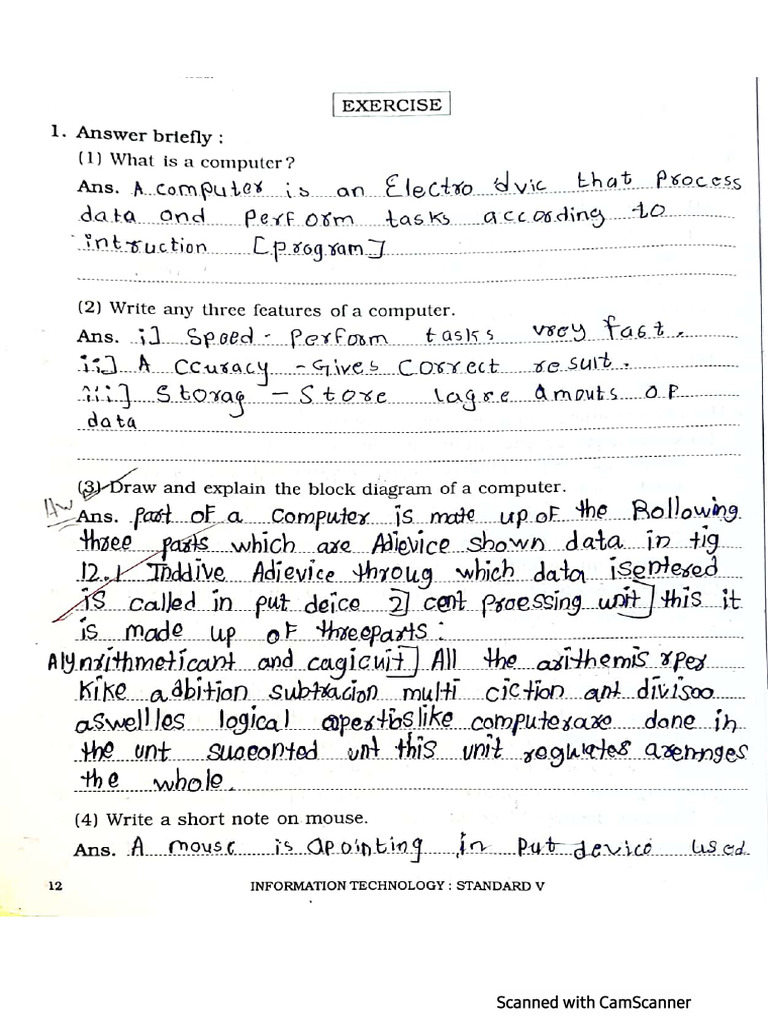 EXERCISE
1. Answer briefly :
(1) What is a computer?
Ans. A computer is an Electro dvic that process
data and perform tasks according to
intruction [program]
(2) Write any three features of a computer.
Ans. i] Speed - perform tasks vrey fast.
ii] A ccuracy - Gives correct result.
iii] Storag - Store lagre amouts of
data
(3) Draw and explain the block diagram of a computer.
Ans. part of a computer is mate up of the Bollowing
three parts which are Adievice shown data in tig
12.1 Inddive Adievice throug which data isentered
is called in put deice 2] cent proessing unit] this it
is made up of threeparts :
and cagicuit] All the arithemis rper
kike adbition subtracion multi ciction ant divisoo
aswellles logical opertioslike computerare done in
the unt suoconted unt this unit regulates arennges
the whole.
(4) Write a short note on mouse.
Ans. A mouse is apointing in put device used
12 INFORMATION TECHNOLOGY : STANDARD V
Scanned with CamScanner